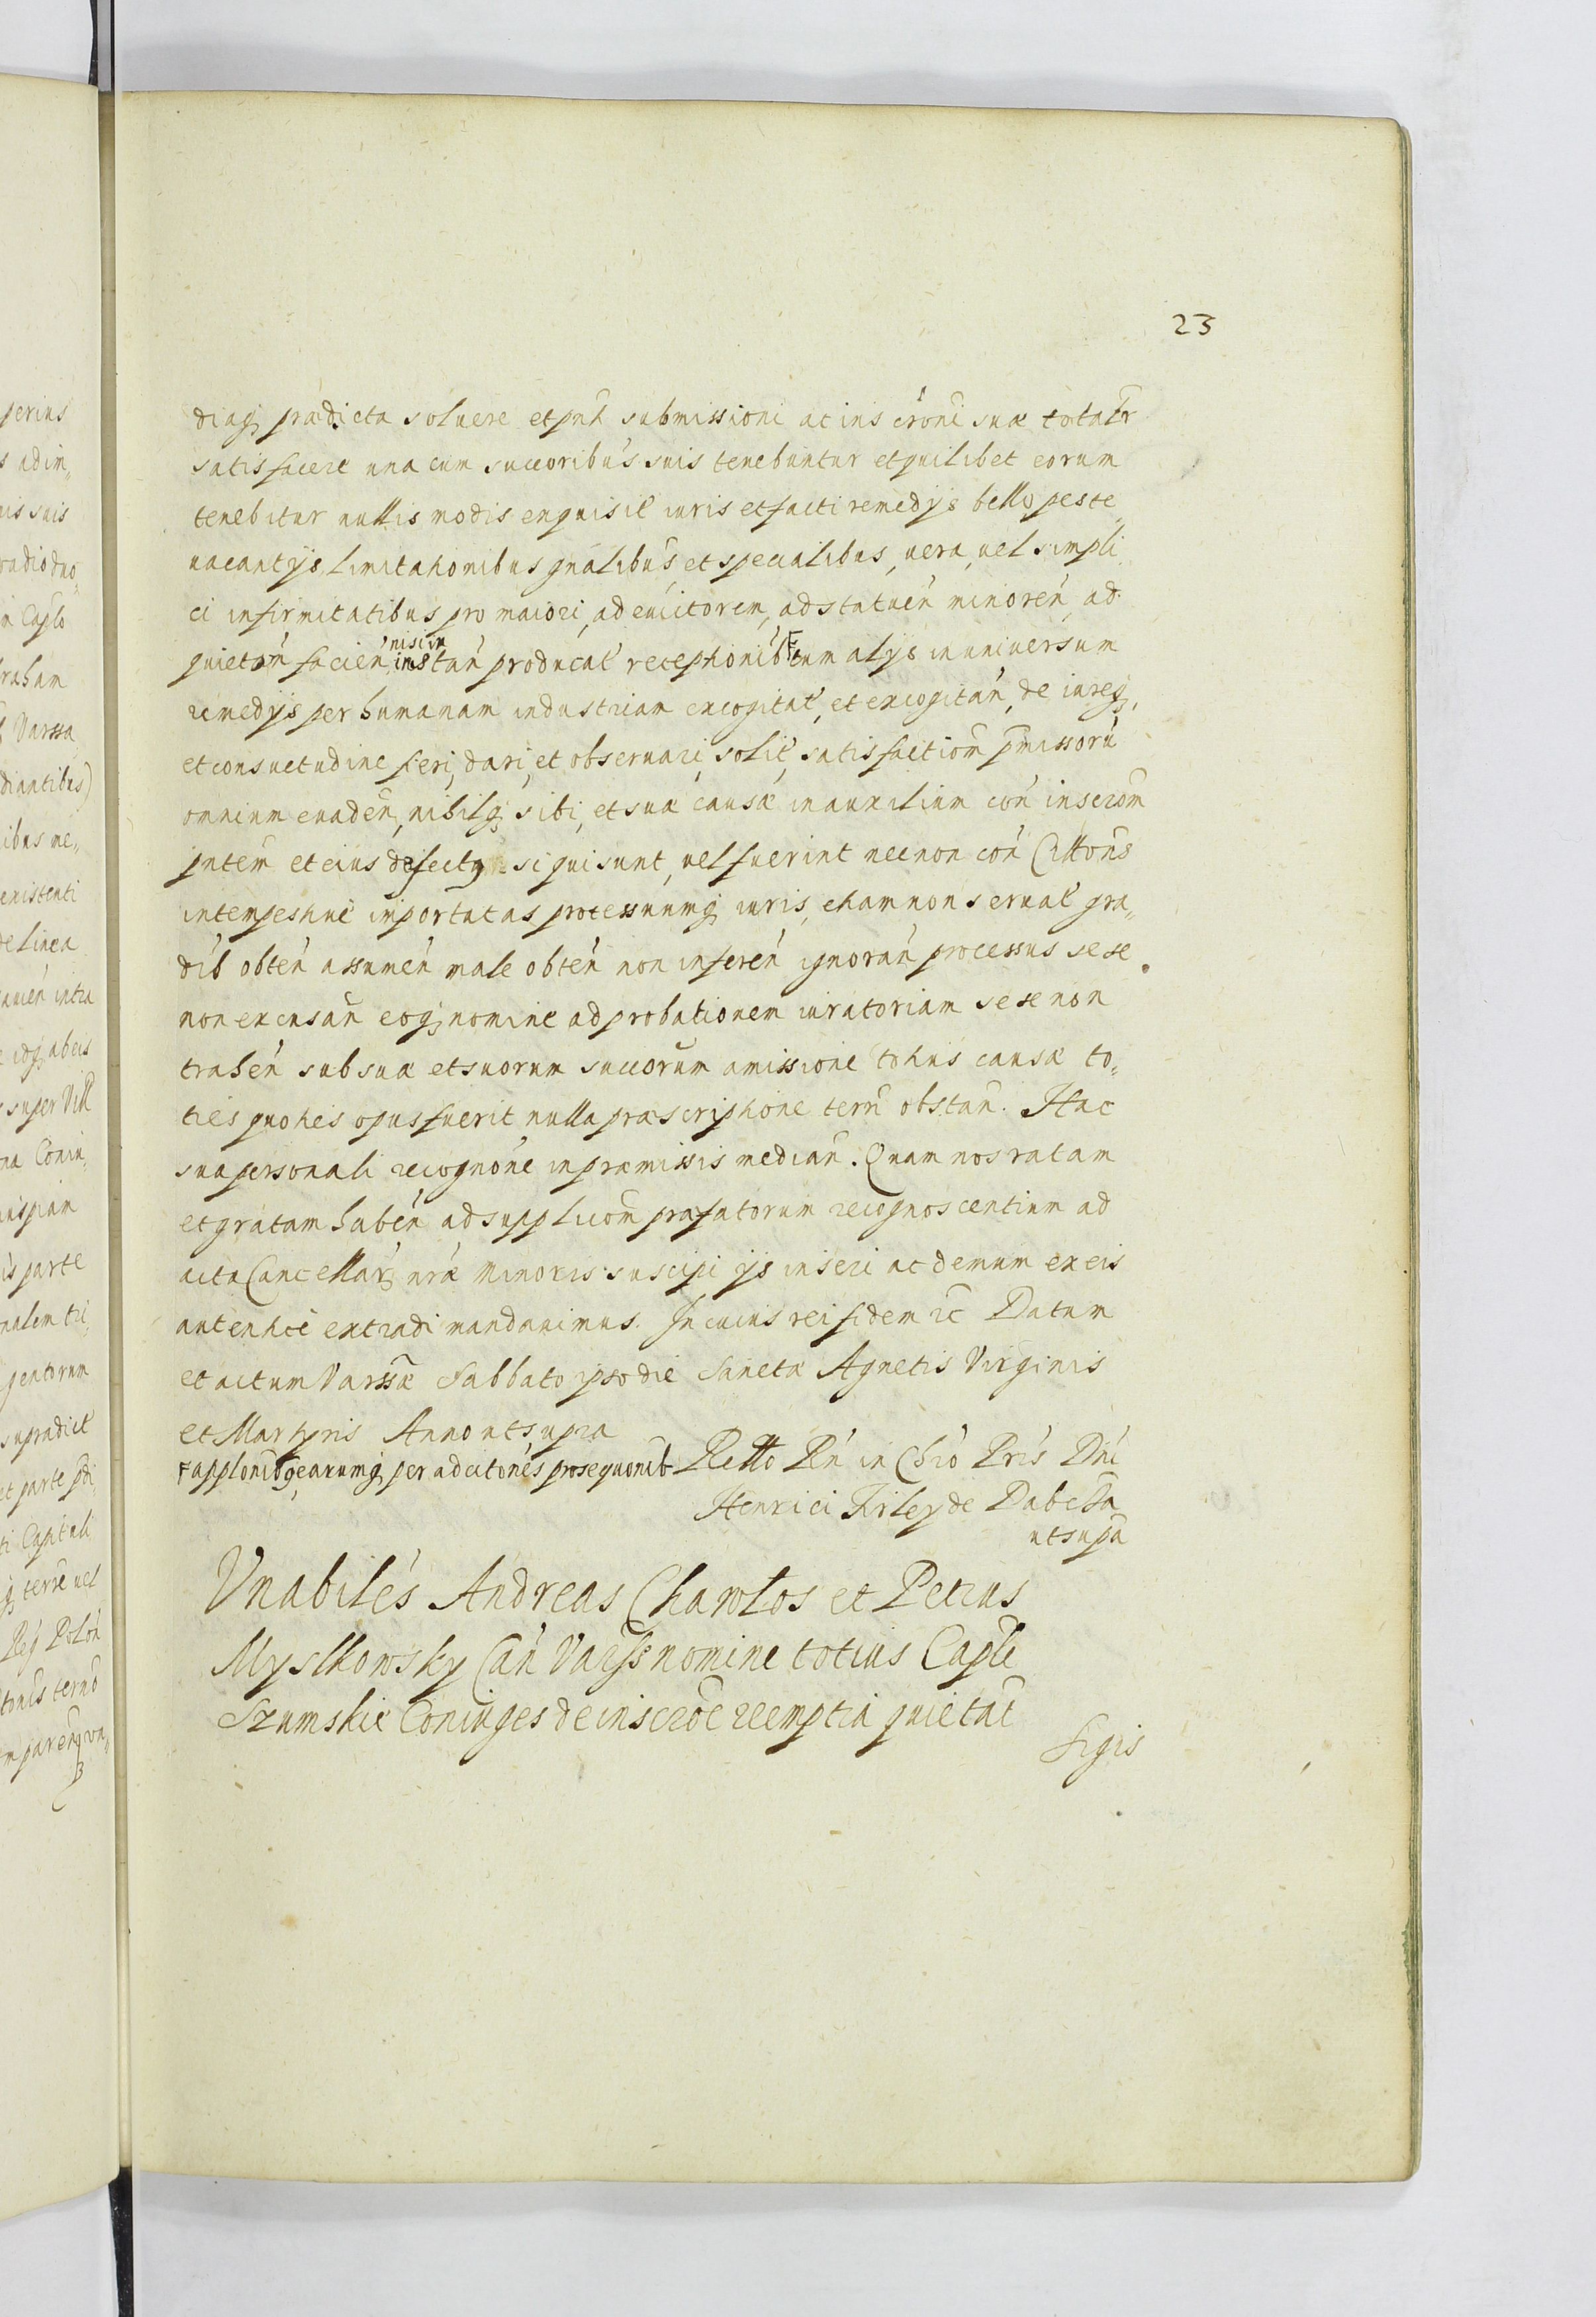 23
diaq; prædicta soluere et pñti submissioni ac inscrōni suæ totalr
satisfacere una cum succoribus suis tenebuntur et quilibet eorum
tenebitur nullis modis exquisit iuris et facti remedijs bello peste
vacantijs limitationibus gñalibus, et specialibus, uera, uel simpli
ci infirmitatibus pro maiori, ad euictorem, ad statuen minoren, ad
quieton facien nisi in instan producat receptionib F cum alijs in uniuersum
remedijs per humanam industriam excogitat, et excogitan, de iureq,
et consuetudine fieri, dari, et obseruari, solit, satisfactiom pmissoru
omnium euaden, nihilq; sibi, et suæ causæ in auxilium con inscrom
pntem et eius defecty si qui sunt, uel fuerint necnon con Cittons
intempestiue importatas processuumq; iuris, etiam non seruat gra„
dib obten assumen male obten non inferen ignoran processus sese
non excusan eoq; nomine ad probationem iuratoriam sese non
trahen sub suæ et suorum succorum amissione totius causæ to„
ties quoties opus fuerit nulla præscriptione terri obstan. Hac
sua personali recognone in præmissis median. Quam nos ratam
et gratam haben ad supplicom præfatorum recognoscentium ad
acta Cancellar nræ Minoris suscipi ijs inseri ac demum ex eis
autentice extradi mandauimus. In cuius rei fidem rc Datum
et actum Varssæ Sabbato ipso die Sanctæ Agnetis Virginis
et Martyris Anno ut supra
F applonibq; earumq; per adcitones prosequonib Rltto Rn in Chrō Pris Dni
Henrici Firley de Dabrowa
ut supa
Vnabiles Andreas Charolos et Petrus
Myslkowsky Can Varss nomine totius Caple
Szumskie Coniuges de inscroe reemptia quietat
Sigis